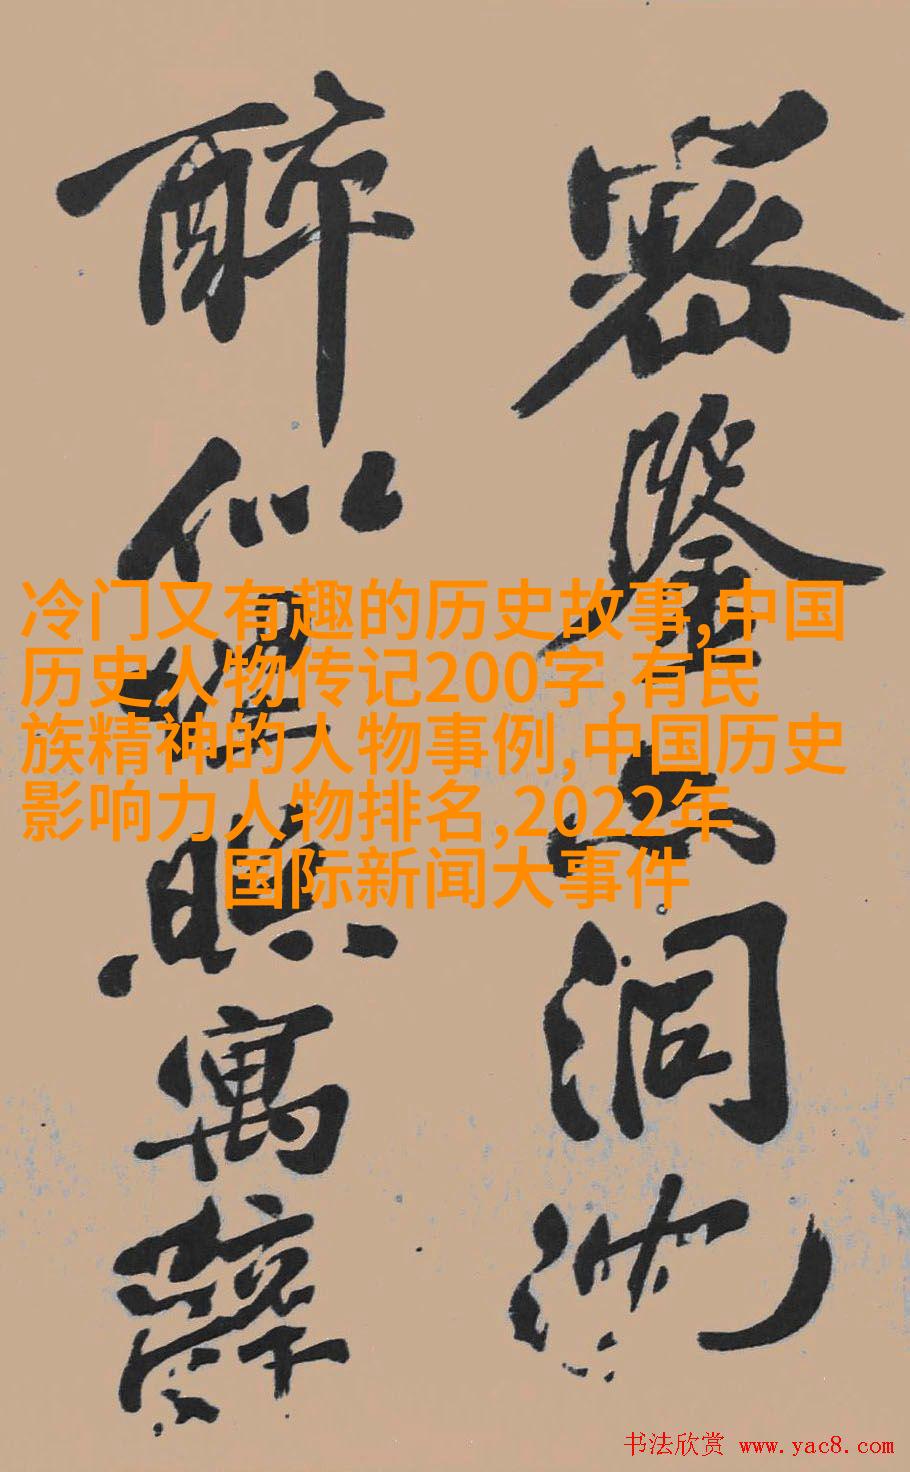 密鑒洞
醉似寓
冷门又有趣的历史故事,中国
历史人物传记200字,有民
族精神的人物事例,中国历史
影响力人物排名,2022年
国际新闻大事件
书法欣赏 www.yac8.com